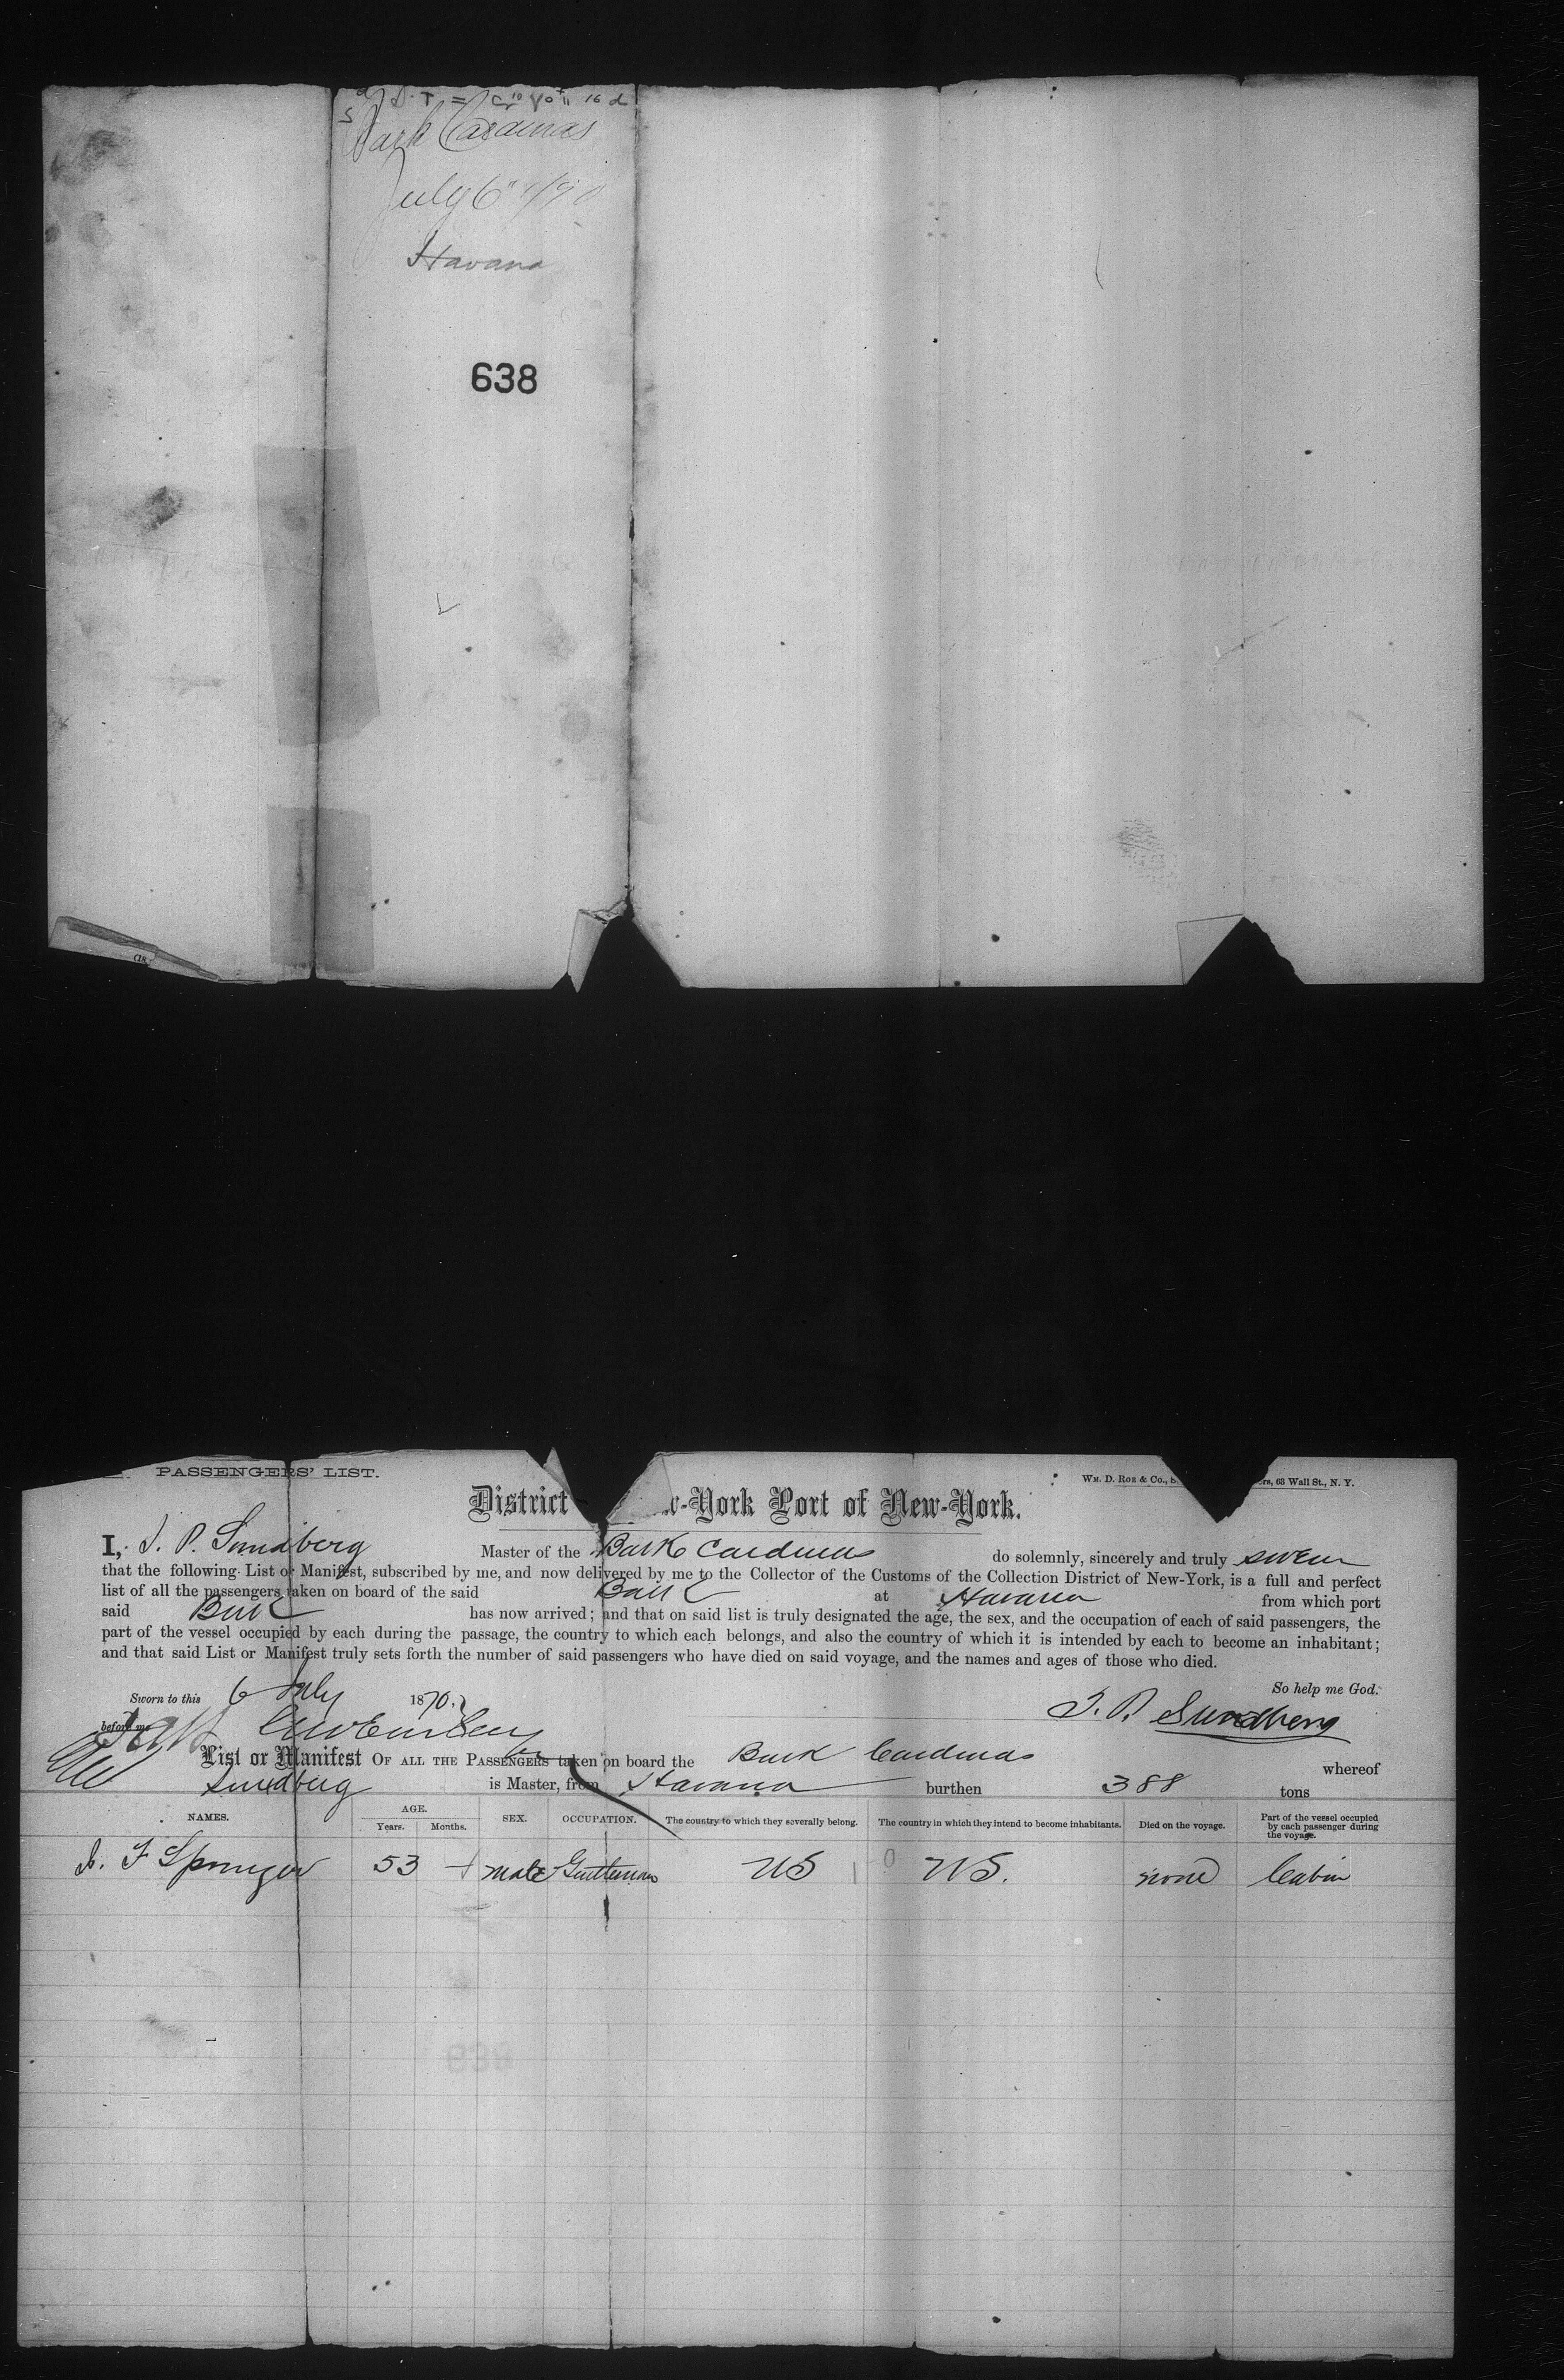 Bark Cardenas
July 6" 1870
Havana
638
PASSENGERS' LIST.
WM. D. ROE & CO., 63 Wall St., N. Y.
District New-York Port of New-York.
I, S. P. Sundberg Master of the Bark Cardenas do solemnly, sincerely and truly swear
that the following List or Manifest, subscribed by me, and now delivered by me to the Collector of the Customs of the Collection District of New-York, is a full and perfect
list of all the passengers taken on board of the said Bark at Havana from which port
said Bark has now arrived; and that on said list is truly designated the age, the sex, and the occupation of each of said passengers, the
part of the vessel occupied by each during the passage, the country to which each belongs, and also the country of which it is intended by each to become an inhabitant;
and that said List or Manifest truly sets forth the number of said passengers who have died on said voyage, and the names and ages of those who died.
So help me God.
Sworn to this 6 July 1870.
before me
S. P. Sundberg
List or Manifest OF ALL THE PASSENGERS taken on board the Bark Cardenas whereof
Sundberg is Master, from Havana burthen 388 tons
NAMES. AGE. Years. Months. SEX. OCCUPATION. The country to which they severally belong. The country in which they intend to become inhabitants. Died on the voyage. Part of the vessel occupied by each passenger during the voyage.
F Springer 53 male Gentleman US US. none Cabin